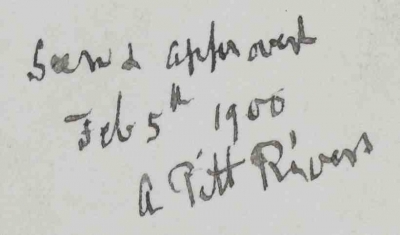 Seen & approved
Feb 5th 1900
A Pitt Rivers